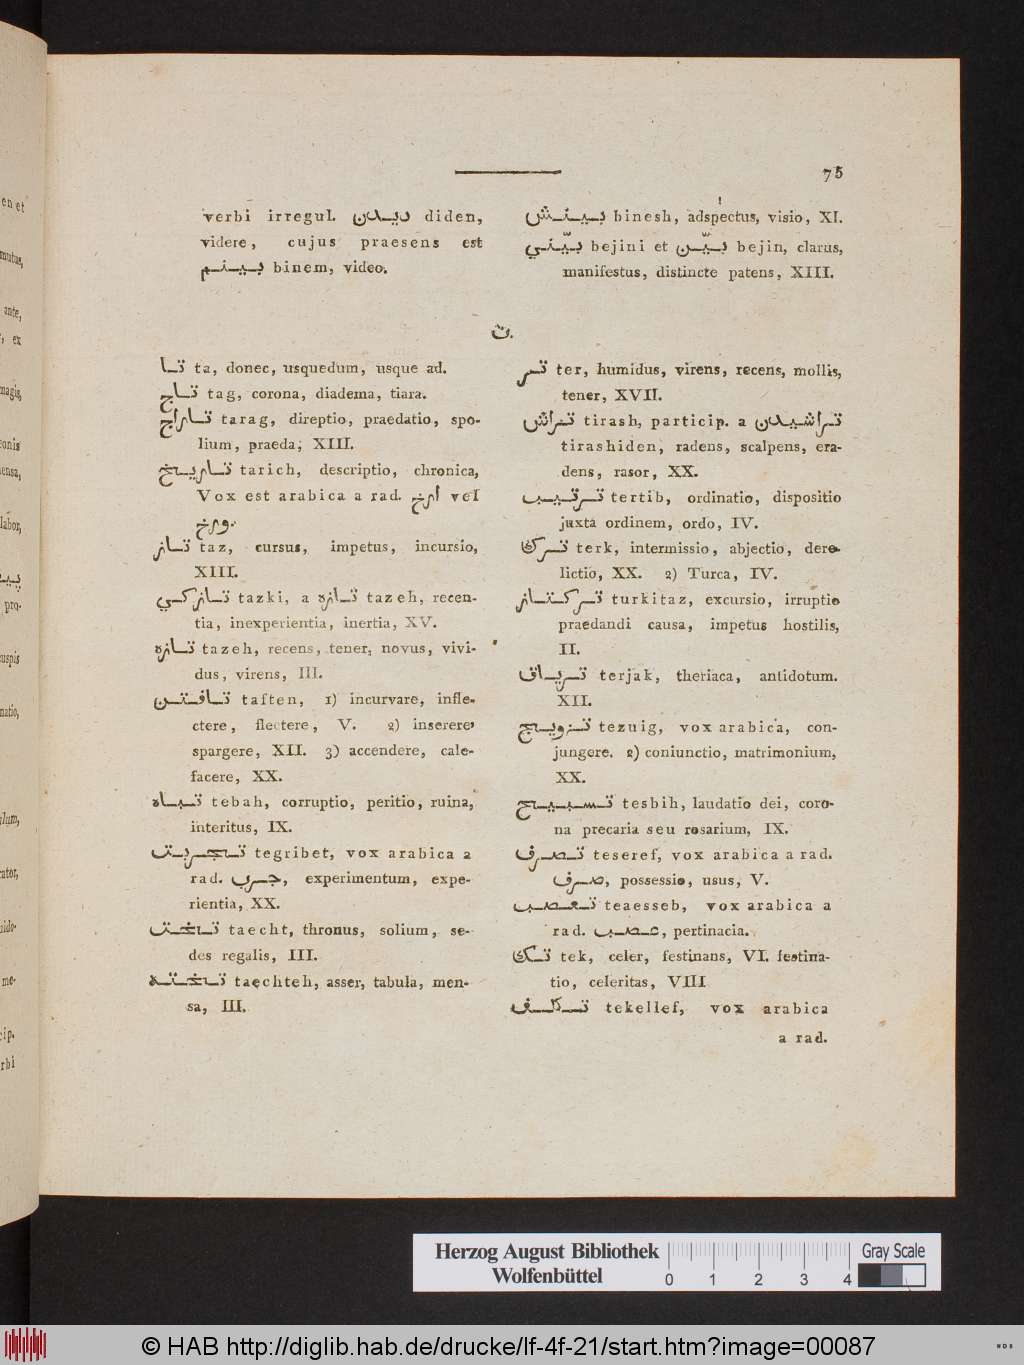 75
verbi irregul. دیدن diden,
videre, cujus praesens est
بینم binem, video.
بینش binesh, adspectus, visio, XI.
بیّني bejini et بیّن bejin, clarus,
manifestus, distincte patens, XIII.
ت.
تا ta, donec, usquedum, usque ad.
تاج tag, corona, diadema, tiara.
تاراج tarag, direptio, praedatio, spo-
lium, praeda, XIII.
تاریخ tarich, descriptio, chronica,
Vox est arabica a rad. أرخ vel
ورخ.
تاز taz, cursus, impetus, incursio,
XIII.
تازكي tazki, a تازه tazeh, recen-
tia, inexperientia, inertia, XV.
تازه tazeh, recens, tener, novus, vivi-
dus, virens, III.
تافتن taften, 1) incurvare, infle-
ctere, flectere, V. 2) inserere,
spargere, XII. 3) accendere, cale-
facere, XX.
تباه tebah, corruptio, peritio, ruina,
interitus, IX.
تجربت tegribet, vox arabica a
rad. جرب, experimentum, expe-
rientia, XX.
تخت taecht, thronus, solium, se-
des regalis, III.
تخته taechteh, asser, tabula, men-
sa, III.
تر ter, humidus, virens, recens, mollis,
tener, XVII.
تراش tirash, particip. a تراشیدن
tirashiden, radens, scalpens, era-
dens, rasor, XX.
ترتیب tertib, ordinatio, dispositio
juxta ordinem, ordo, IV.
ترك terk, intermissio, abjectio, dere-
lictio, XX. 2) Turca, IV.
تركتاز turkitaz, excursio, irruptio
praedandi causa, impetus hostilis,
II.
تریاق terjak, theriaca, antidotum.
XII.
تزویج tezuig, vox arabica, con-
jungere. 2) coniunctio, matrimonium,
XX.
تسبیح tesbih, laudatio dei, coro-
na precaria seu rosarium, IX.
تصرف teseref, vox arabica a rad.
صرف, possessio, usus, V.
تعصب teaesseb, vox arabica a
rad. عصب, pertinacia.
تك tek, celer, festinans, VI. festina-
tio, celeritas, VIII
تكلف tekellef, vox arabica
a rad.
Herzog August Bibliothek
Wolfenbüttel
0 1 2 3 4
Gray Scale
© HAB http://diglib.hab.de/drucke/lf-4f-21/start.htm?image=00087